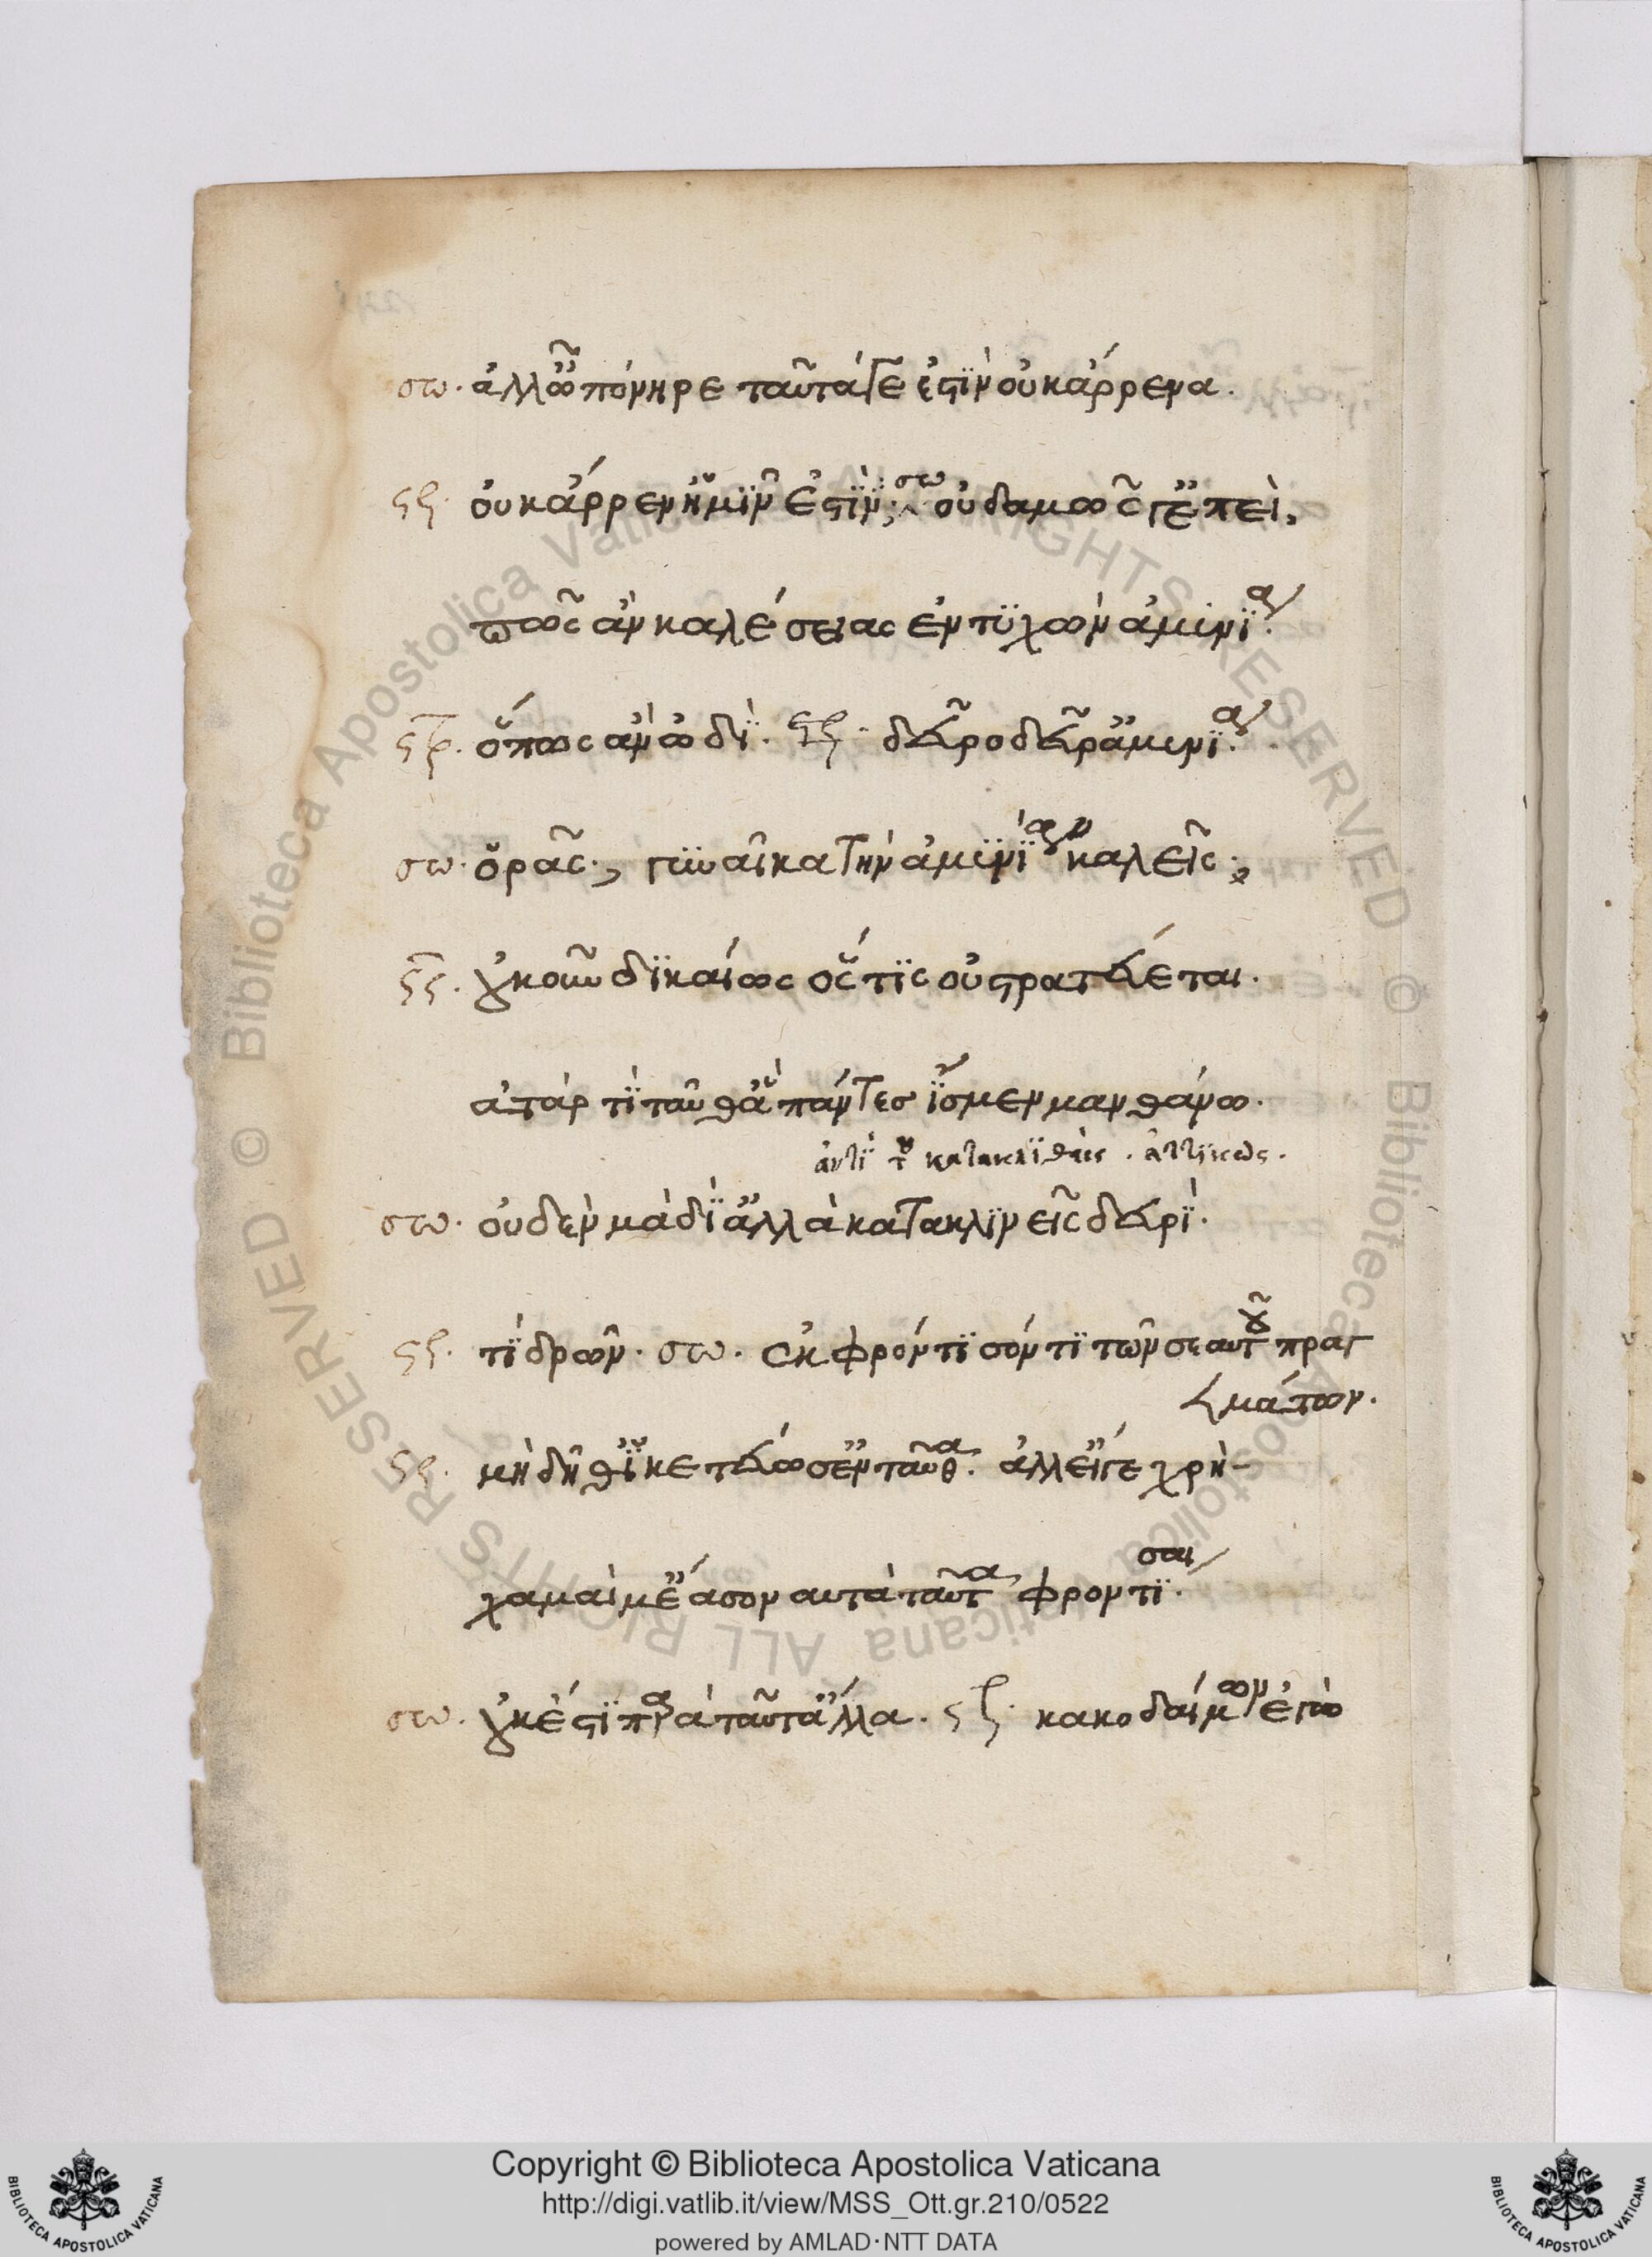 σω. ἀλλ' ὦ πόνηρε ταῦτά γε ἐστὶν οὐκ ἄρρενα.
στρ. οὐκ ἄρρεν' ἡμῖν ἐστὶν; σω οὐδαμῶς γ' ἐπεὶ,
πῶς ἂν καλέσειας ἐντυχὼν ἀμινίᾳ.
στρ. ὅπως ἂν ὡδὶ. στρ. δεῦρο δεῦρ' ἀμινία.
σω. ὁρᾷς; γυναῖκα τὴν ἀμινίαν καλεῖς;
στρ. οὐκοῦν δικαίως ὅστις οὐ στρατεύεται.
ἀτὰρ τί ταῦθ' ἃ πάντες ἴσμεν μανθάνω.
ἀντὶ τοῦ κατακλιθεὶς. ἀττικῶς.
σω. οὐδὲν μὰ δί' ἀλλὰ κατακλινεὶς δευρὶ.
στρ. τί δρῶν. σω. ἐκφρόντισόν τι τῶν σεαυτοῦ πραγ
μάτων.
στρ. μὴ δῆθ' ἱκετεύω σ' ἐνταῦθα. ἀλλ' εἴ γε χρὴ-
χαμαί μ' ἔασον αὐτὰ ταῦτα φροντίσαι.
σω. οὐκ ἔστι παρὰ ταῦτ' ἄλλα. στρ. κακοδαίμων ἐγὼ
Copyright © Biblioteca Apostolica Vaticana
http://digi.vatlib.it/view/MSS_Ott.gr.210/0522
powered by AMLAD·NTT DATA
© Biblioteca Apostolica Vaticana ALL RIGHTS RESERVED
© Biblioteca Apostolica Vaticana ALL RIGHTS RESERVED
BIBLIOTECA APOSTOLICA VATICANA
BIBLIOTECA APOSTOLICA VATICANA